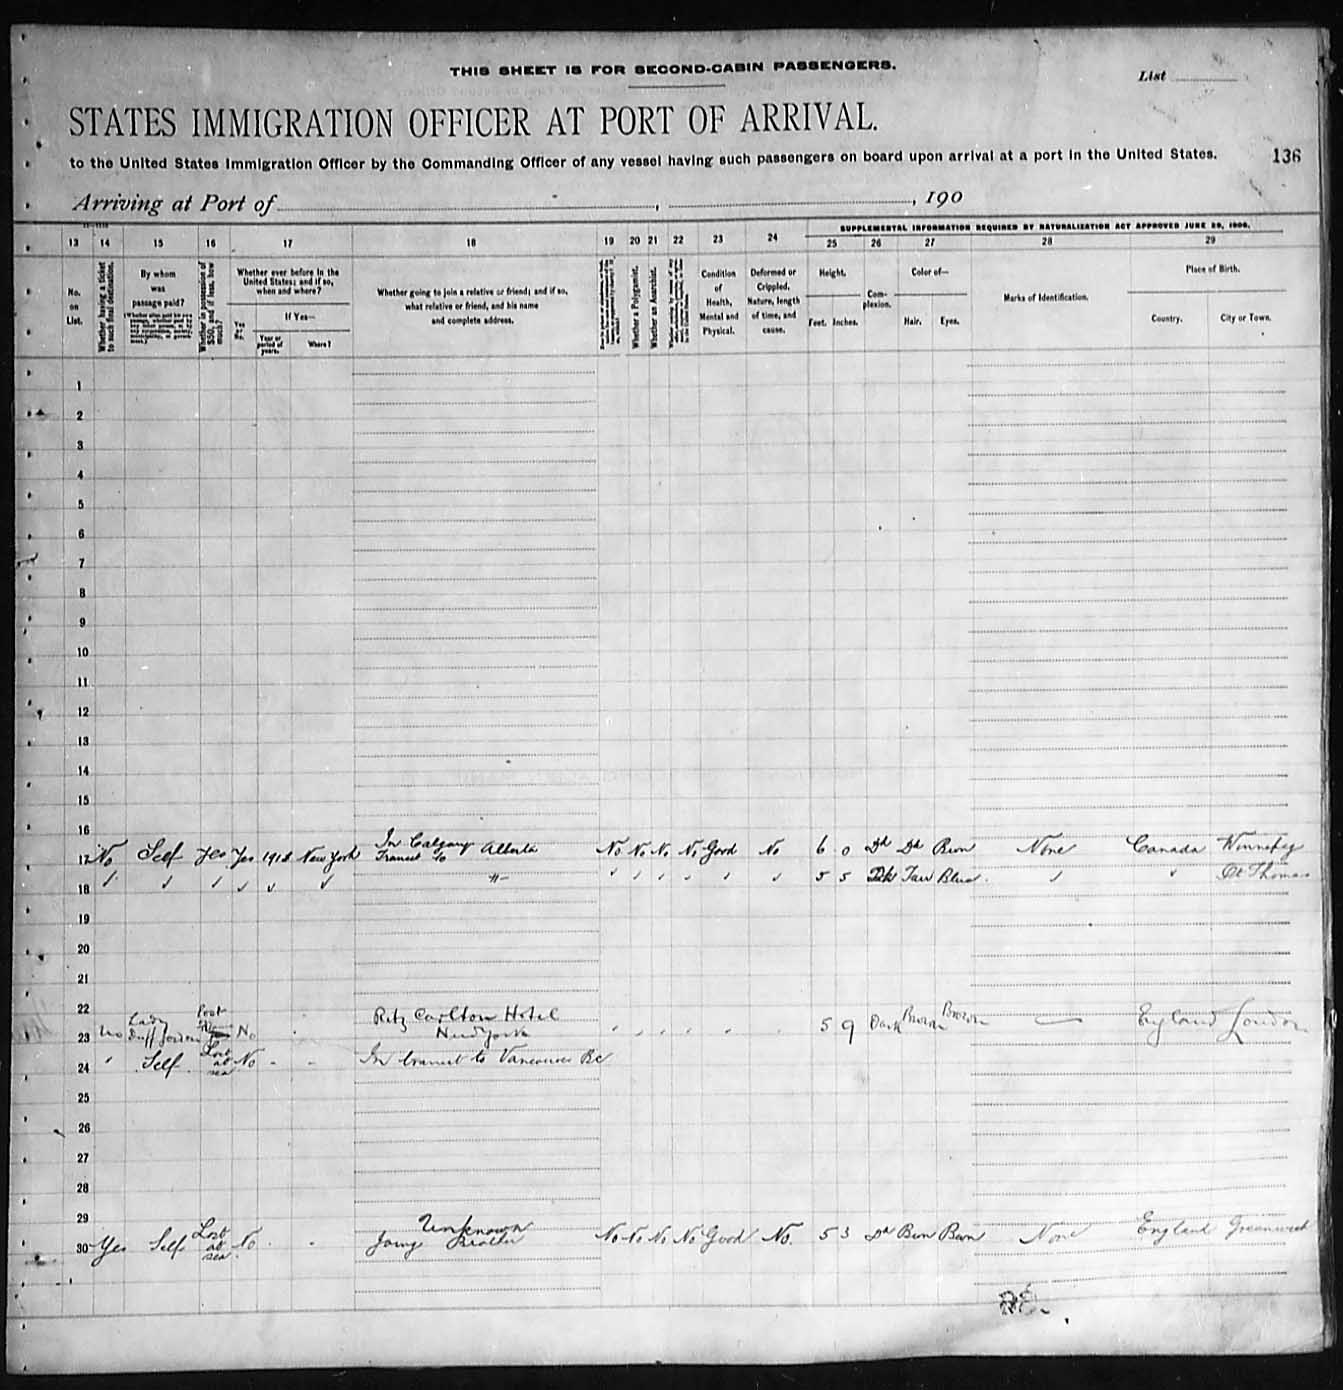 THIS SHEET IS FOR SECOND-CABIN PASSENGERS.
List
STATES IMMIGRATION OFFICER AT PORT OF ARRIVAL.
to the United States Immigration Officer by the Commanding Officer of any vessel having such passengers on board upon arrival at a port in the United States.
136
Arriving at Port of , , 190
SUPPLEMENTAL INFORMATION REQUIRED BY NATURALIZATION ACT APPROVED JUNE 29, 1906.
13 14 15 16 17 18 19 20 21 22 23 24 25 26 27 28 29
No. on List.
Whether having a ticket to such final destination.
By whom was passage paid?
Whether in possession of $50, and if less, how much?
Whether ever before in the United States; and if so, when and where?
Yes or No
If Yes—
Year or period of years.
Where?
Whether going to join a relative or friend; and if so, what relative or friend, and his name and complete address.
Whether a Polygamist.
Whether an Anarchist.
Condition of Health, Mental and Physical.
Deformed or Crippled. Nature, length of time, and cause.
Height.
Feet. Inches.
Complexion.
Color of—
Hair. Eyes.
Marks of Identification.
Place of Birth.
Country. City or Town.
1
2
3
4
5
6
7
8
9
10
11
12
13
14
15
16
17 No Self Yes Yes New York In Transit to Calgary Alberta No No No No Good No 6 0 Dk Dk Brwn None Canada Winnepeg
18 5 5 Dk Blue St Thomas
19
20
21
22
23 No Lady Duff Gordon No Ritz Carlton Hotel New York 5 9 Dark Brown Brown — England London
24 Self Lost at sea No - - In transit to Vancouver Bc
25
26
27
28
29
30 Yes Self Lost at sea No Joing Brother Unknown No No No No Good No. 5 3 Dk Brwn Brwn None England Greenwich